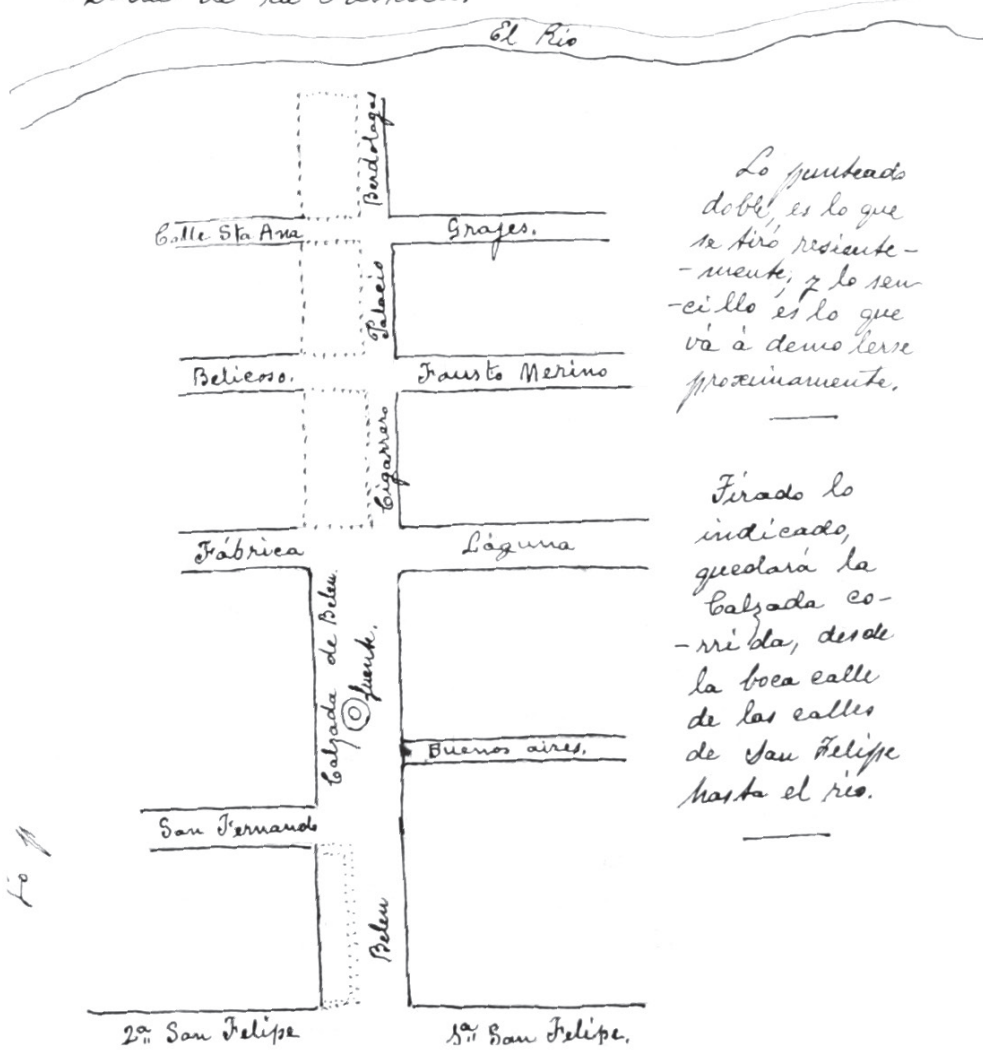 El Río
Berdolagas
Calle Sta Ana
Grajes.
Palacio
Belicoso.
Fausto Merino
Cigarrero
Fábrica
Láguna
Calzada de Belen.
fuente.
Buenos aires.
San Fernando
Belen
2ª San Felipe
1ª San Felipe.
Lo punteado
doble, es lo que
se tiró resiente-
-mente; y lo sen-
-cillo és lo que
vá á demolerse
proximamente.
Tirado lo
indicado,
quedará la
Calzada co-
-rrida, desde
la boca calle
de las calles
de San Felipe
hasta el río.